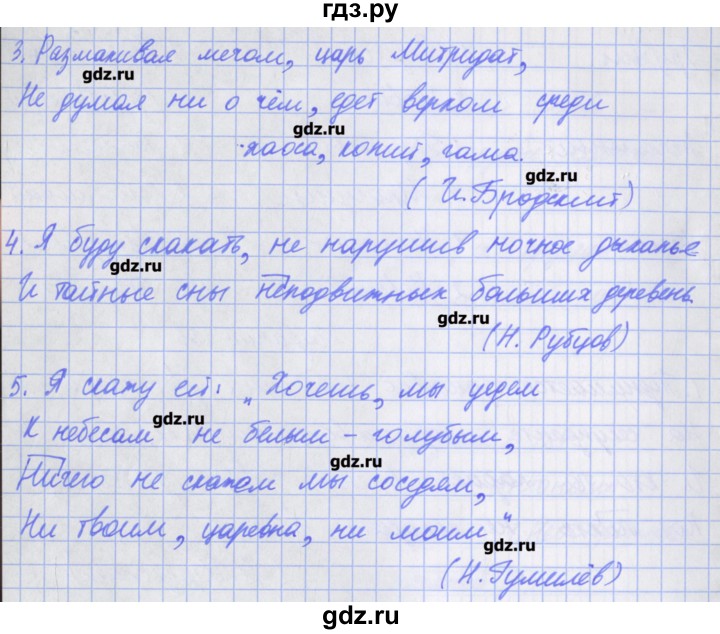 гдз.ру
3. Размахивая мечом, царь Митридат,
gdz.ru
Не думая ни о чём, едет верхом среди
gdz.ru
хаоса, копий, гама.
gdz.ru
(И. Бродский)
4. Я буду скакать, не нарушив ночное дыханье
gdz.ru
И тайные сны неподвижных больших деревень.
gdz.ru
(Н. Рубцов)
5. Я скажу ей: „Хочешь, мы уедем
gdz.ru
К небесам не белым – голубым,
gdz.ru
Ничего не скажем мы соседям,
Ни твоим, царевна, ни моим"
gdz.ru
(Н. Гумилёв)
gdz.ru